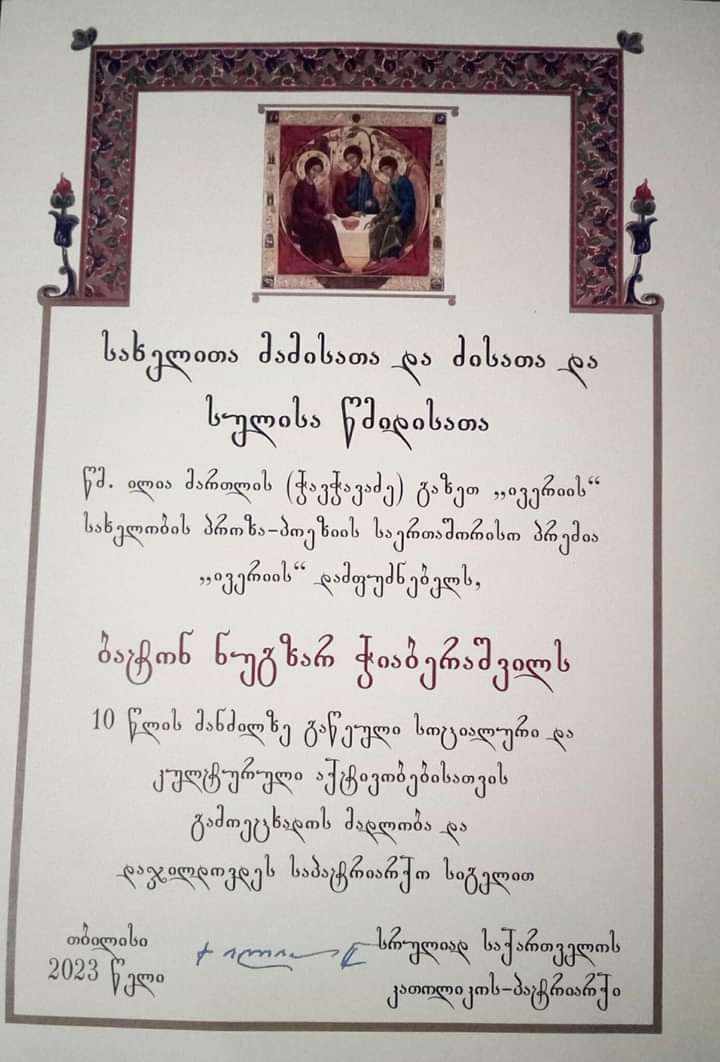 სახელითა მამისათა და ძისათა და
სულისა წმიდისათა
წმ. ილია მართლის (ჭავჭავაძე) გაზეთ „ივერიის“
სახელობის პროზა-პოეზიის საერთაშორისო პრემია
„ივერიის“ დამფუძნებელს,
ბატონ ნუგზარ ჭიაბერაშვილს
10 წლის მანძილზე გაწეული სოციალური და
კულტურული აქტივობებისათვის
გამოეცხადოს მადლობა და
დაჯილდოვდეს საპატრიარქო სიგელით
თბილისი
2023 წელი
სრულიად საქართველოს
კათოლიკოს-პატრიარქი